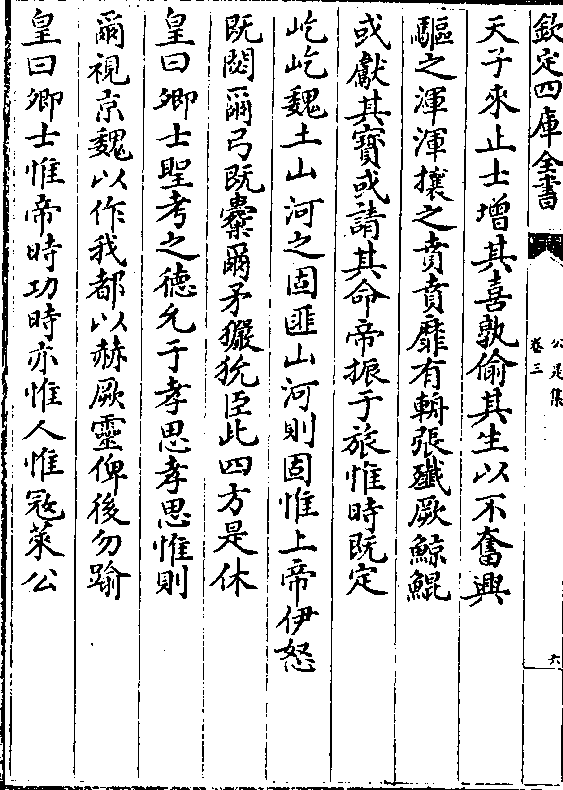 欽定四庫全書
公是集
卷三
六
天子來止士增其喜孰偷其生以不奮興
驅之渾渾攘之賁賁靡有輈張殲厥鯨鯤
或獻其寶或請其命帝振于旅惟時既定
屹屹魏土山河之固匪山河則固惟上帝伊怒
既閟爾弓既櫜爾矛玁狁臣此四方是休
皇曰卿士聖考之德允于孝思孝思惟則
爾視京魏以作我都以赫厥靈俾後勿踰
皇曰卿士惟帝時功時亦惟人惟冦萊公